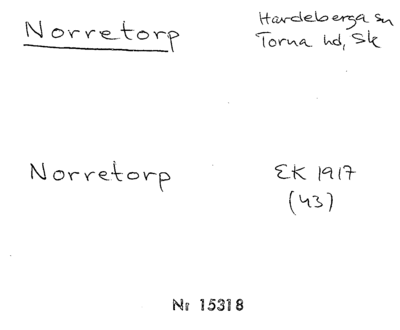 Norretorp
Hardeberga sn
Torna hd, Sk
Norretorp
EK 1917
(43)
Nr 15318